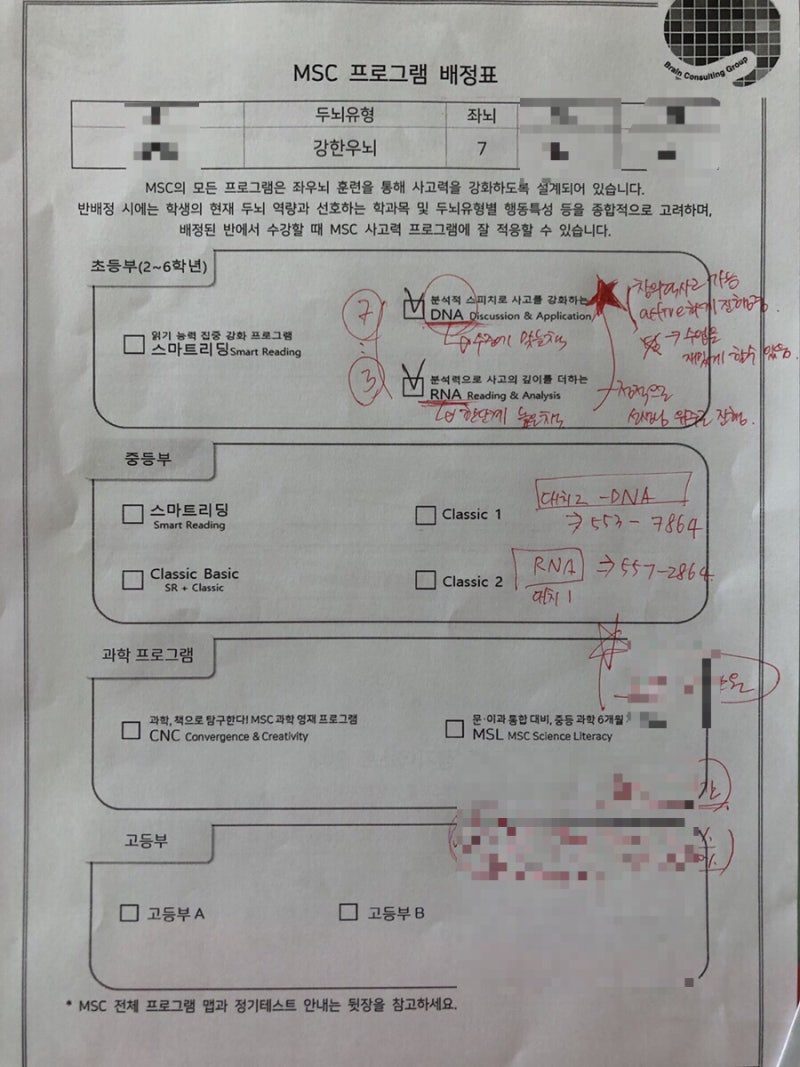 Brain Consulting Group
MSC 프로그램 배정표
두뇌유형 좌뇌
강한우뇌 7
MSC의 모든 프로그램은 좌우뇌 훈련을 통해 사고력을 강화하도록 설계되어 있습니다.
반배정 시에는 학생의 현재 두뇌 역량과 선호하는 학과목 및 두뇌유형별 행동특성 등을 종합적으로 고려하며,
배정된 반에서 수강할 때 MSC 사고력 프로그램에 잘 적응할 수 있습니다.
초등부(2~6학년)
읽기 능력 집중 강화 프로그램
스마트리딩 Smart Reading
⑦
분석적 스피치로 사고를 강화하는
DNA Discussion & Application
③
분석력으로 사고의 깊이를 더하는
RNA Reading & Analysis
한단계
→ 수업을
재밌게 할수 있음
선생님 위주로 진행.
중등부
스마트리딩
Smart Reading
Classic 1
Classic Basic
SR + Classic
Classic 2
대치2 - DNA
⇒ 553 - 7864
RNA ⇒ 557-2864
대치1
과학 프로그램
과학, 책으로 탐구한다! MSC 과학 영재 프로그램
CNC Convergence & Creativity
문·이과 통합 대비, 중등 과학 6개월
MSL MSC Science Literacy
고등부
고등부 A
고등부 B
* MSC 전체 프로그램 맵과 정기테스트 안내는 뒷장을 참고하세요.